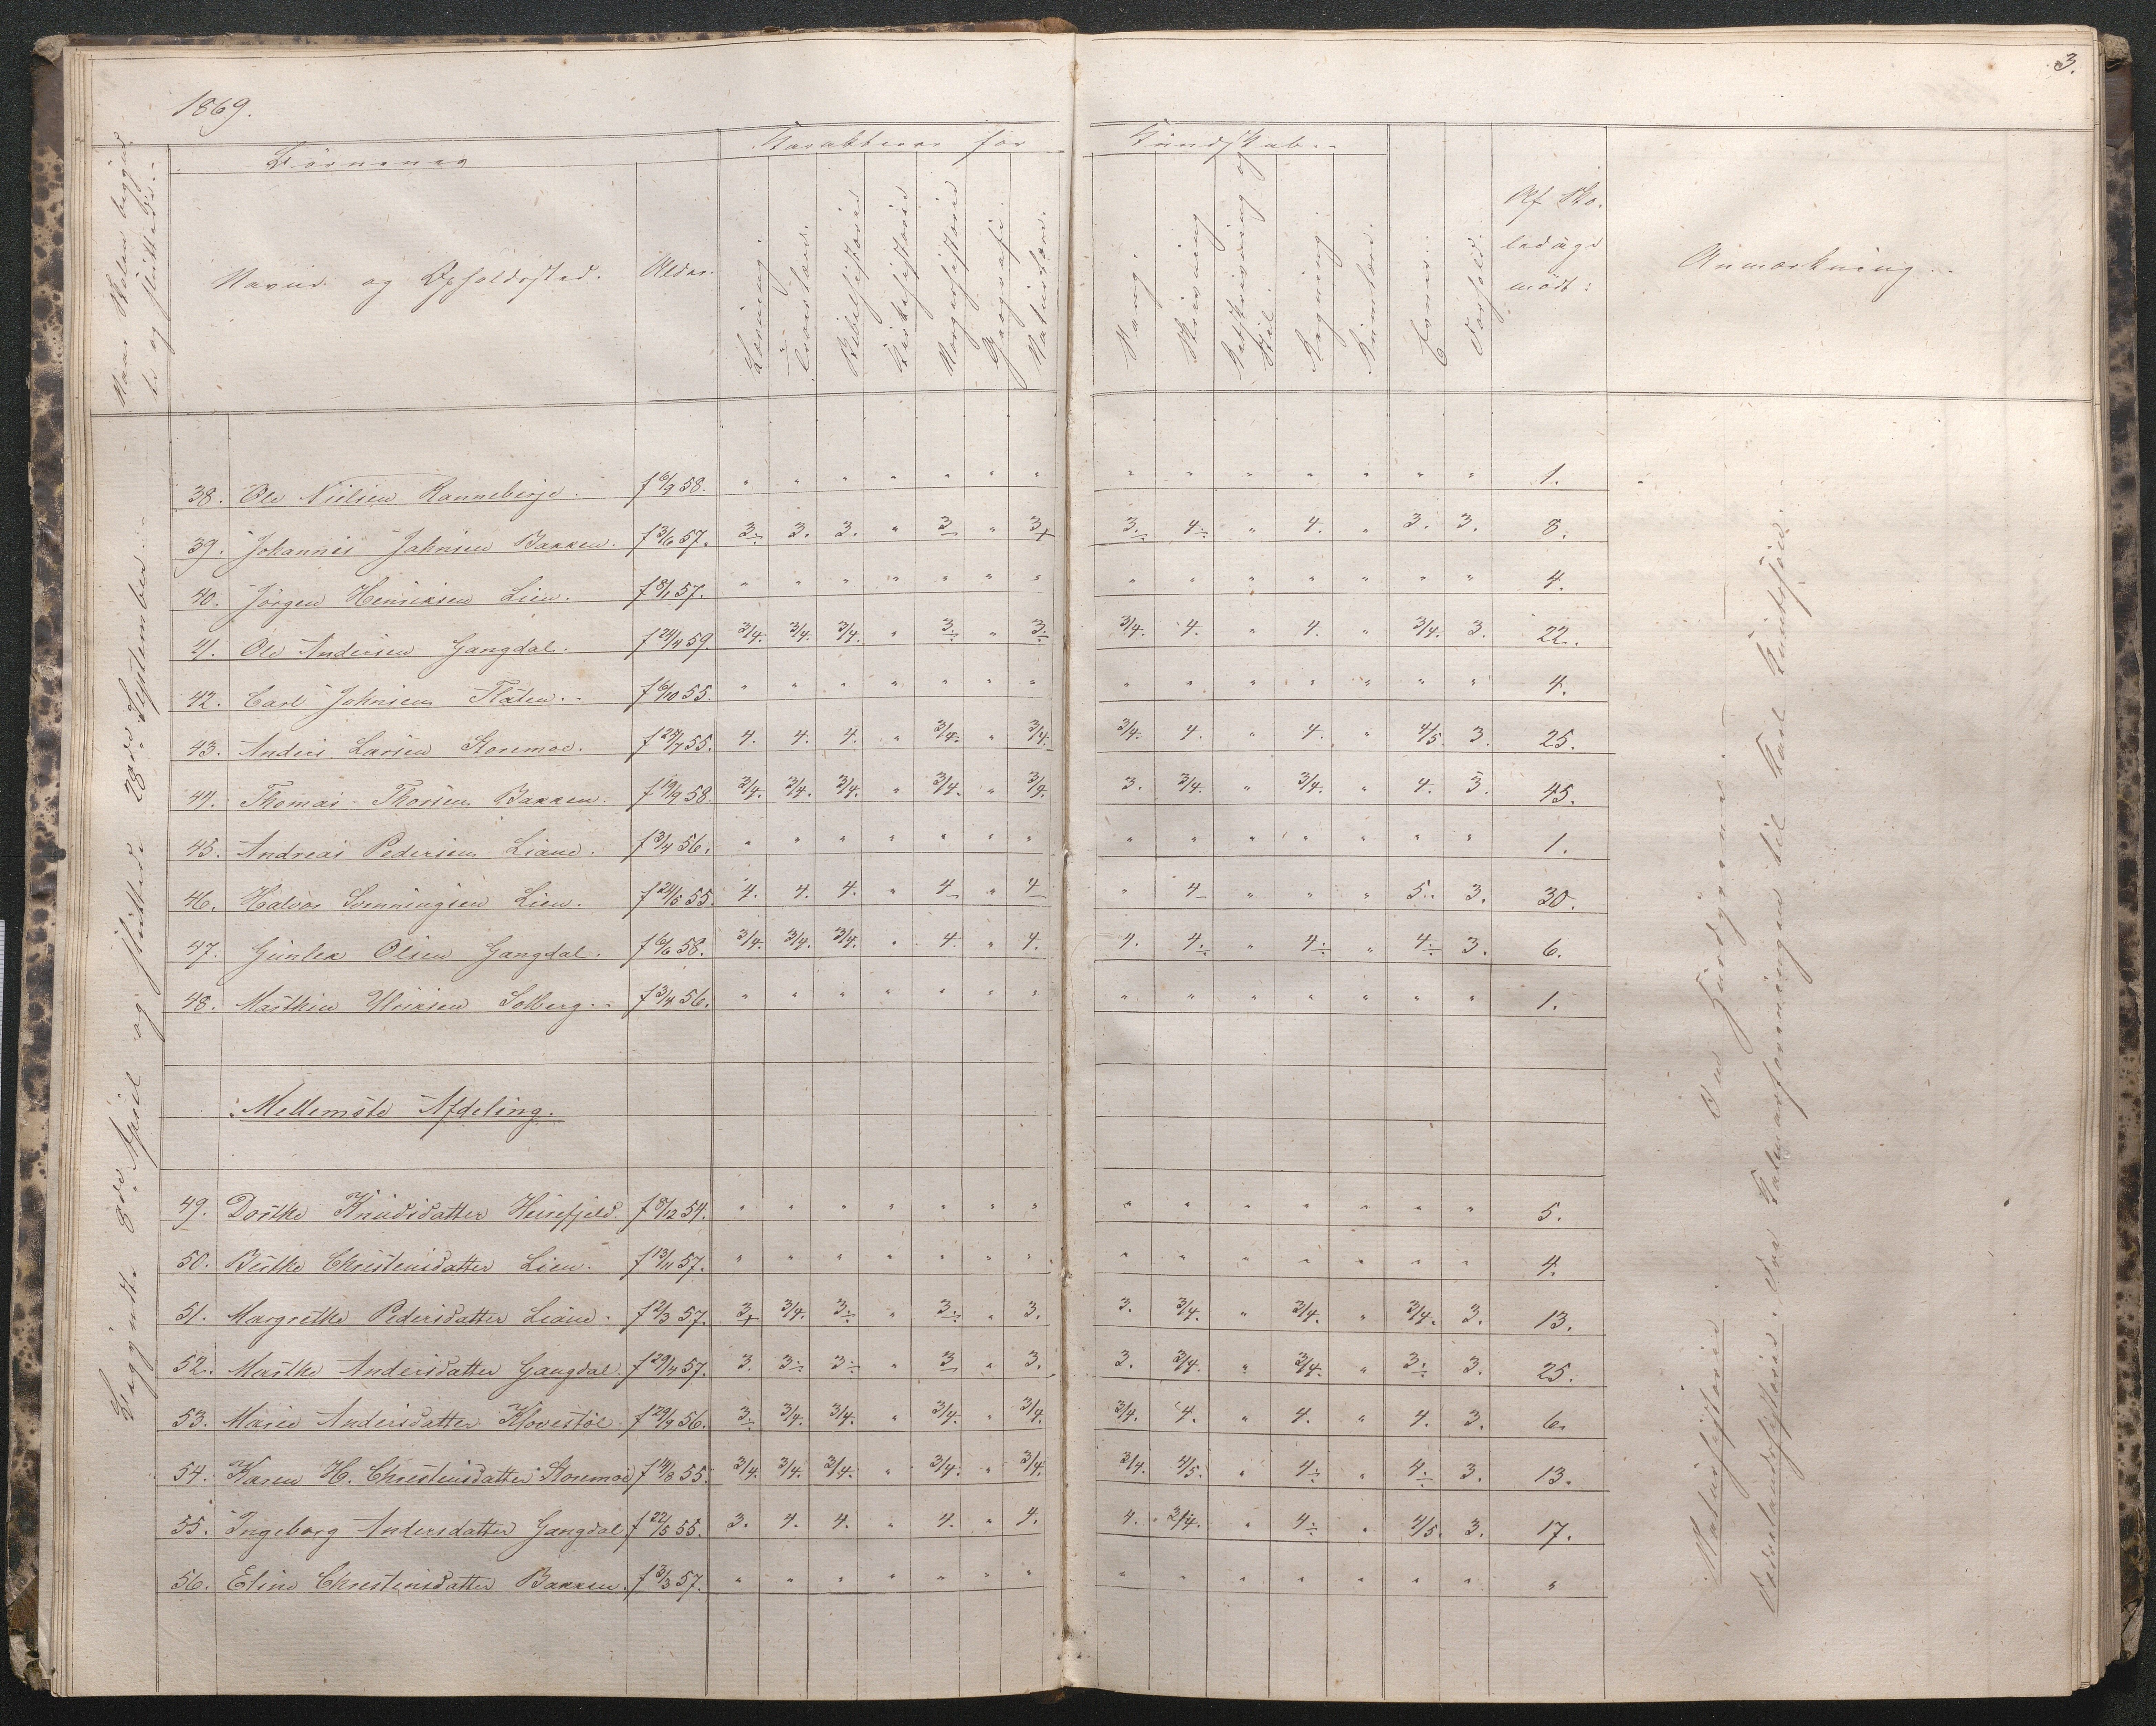 3.
1869.
Naar Skolen begynd-
te og sluttede.
Børnenes
Karakterer for
Kundskab.
Navne og Opholdssted.
Alder.
Læsning.
Troeslære.
Bibelhistorie
Kirkehistorie
Norgeshistorie
Geografi.
Naturlære.
Sang.
Skrivning
Retskrivning og
Stil.
Regning
Evner.
Forhold.
Af Sko-
ledage
mødt:
Anmærkning.
Begyndte 8de April og sluttede 28de September.
38. Ole Nielsen Ranneberje. f 6/9 58. " " " " " " " " " " " " " " 1.
39. Johannes Jahnsen Bakken. f 3/6 57. 3÷ 3. 3. " 3 " 3+ 3÷ 4÷ " 4. " 3. 3. 8.
40. Jörgen Henriksen Lien. f 8/1 57. " " " " " " " " " " " " " " 4.
41. Ole Andersen Gangdal. f 24/4 59. 3/4. 3/4. 3/4. " 3÷ " 3÷ 3/4. 4. " 4. " 3/4. 3. 22.
42. Carl Johnsen Flaten. f 6/10 55. " " " " " " " " " " " " " " 4.
43. Anders Larsen Storemoe. f 24/7 55. 4. 4. 4. " 3/4. " 3/4. 3/4. 4. " 4. " 4/5. 3. 25.
44. Thomas Thorsen Bakken. f 19/9 58. 3/4. 3/4. 3/4. " 3/4. " 3/4. 3. 3/4. " 3/4. " 4. 3. 45.
45. Andreas Pedersen Liane. f 3/4 56. " " " " " " " " " " " " " " 1.
46. Halvor Svenningsen Lien. f 24/5 55. 4. 4. 4. " 4 " 4 " 4 " " " 5. 3. 30.
47. Gunlek Olsen Gangdal. f 6/6 58. 3/4. 3/4. 3/4. " 4. " 4. 4. 4÷ " 4÷ " 4÷ 3. 6.
48. Mathin Ulriksen Solberg. f 3/4 56. " " " " " " " " " " " " " " 1.
Mellemste Afdeling.
49. Dorthe Knudsdatter Heirefjeld. f 8/12 54. " " " " " " " " " " " " " " 5.
50. Birthe Christensdatter Lien. f 13/11 57. " " " " " " " " " " " " " " 4.
51. Margrethe Pedersdatter Liane. f 2/3 57. 3+ 3/4. 3÷ " 3÷ " 3. 3. 3/4. " 3/4. " 3/4. 3. 13.
52. Marthe Andersdatter Gangdal. f 29/4 57. 3. 3÷ 3÷ " 3 " 3. 3. 3/4. " 3/4. " 3÷ 3. 25.
53. Marie Andersdatter Klovestöl. f 29/9 56. 3÷ 3/4. 3/4. " 3/4. " 3/4. 3/4. 4. " 4. " 4. 3. 6.
54. Karen H. Christensdatter Storemoe f 14/8 55. 3/4. 3/4. 3/4. " 3/4. " 3/4. 3/4. 4/5. " 4÷ " 4÷ 3. 13.
55. Ingeborg Andersdatter Gangdal f 22/5 55. 3. 4. 4. " 4. " 4. 4. 3/4. " 4÷ " 4/5. 3. 17.
56. Eline Christensdatter Bakken. f 3/3 57. " " " " " " " " " " " " " " "
Naturhistorie.
Fædrelandshistorie. Fra Kalmarforeningen til